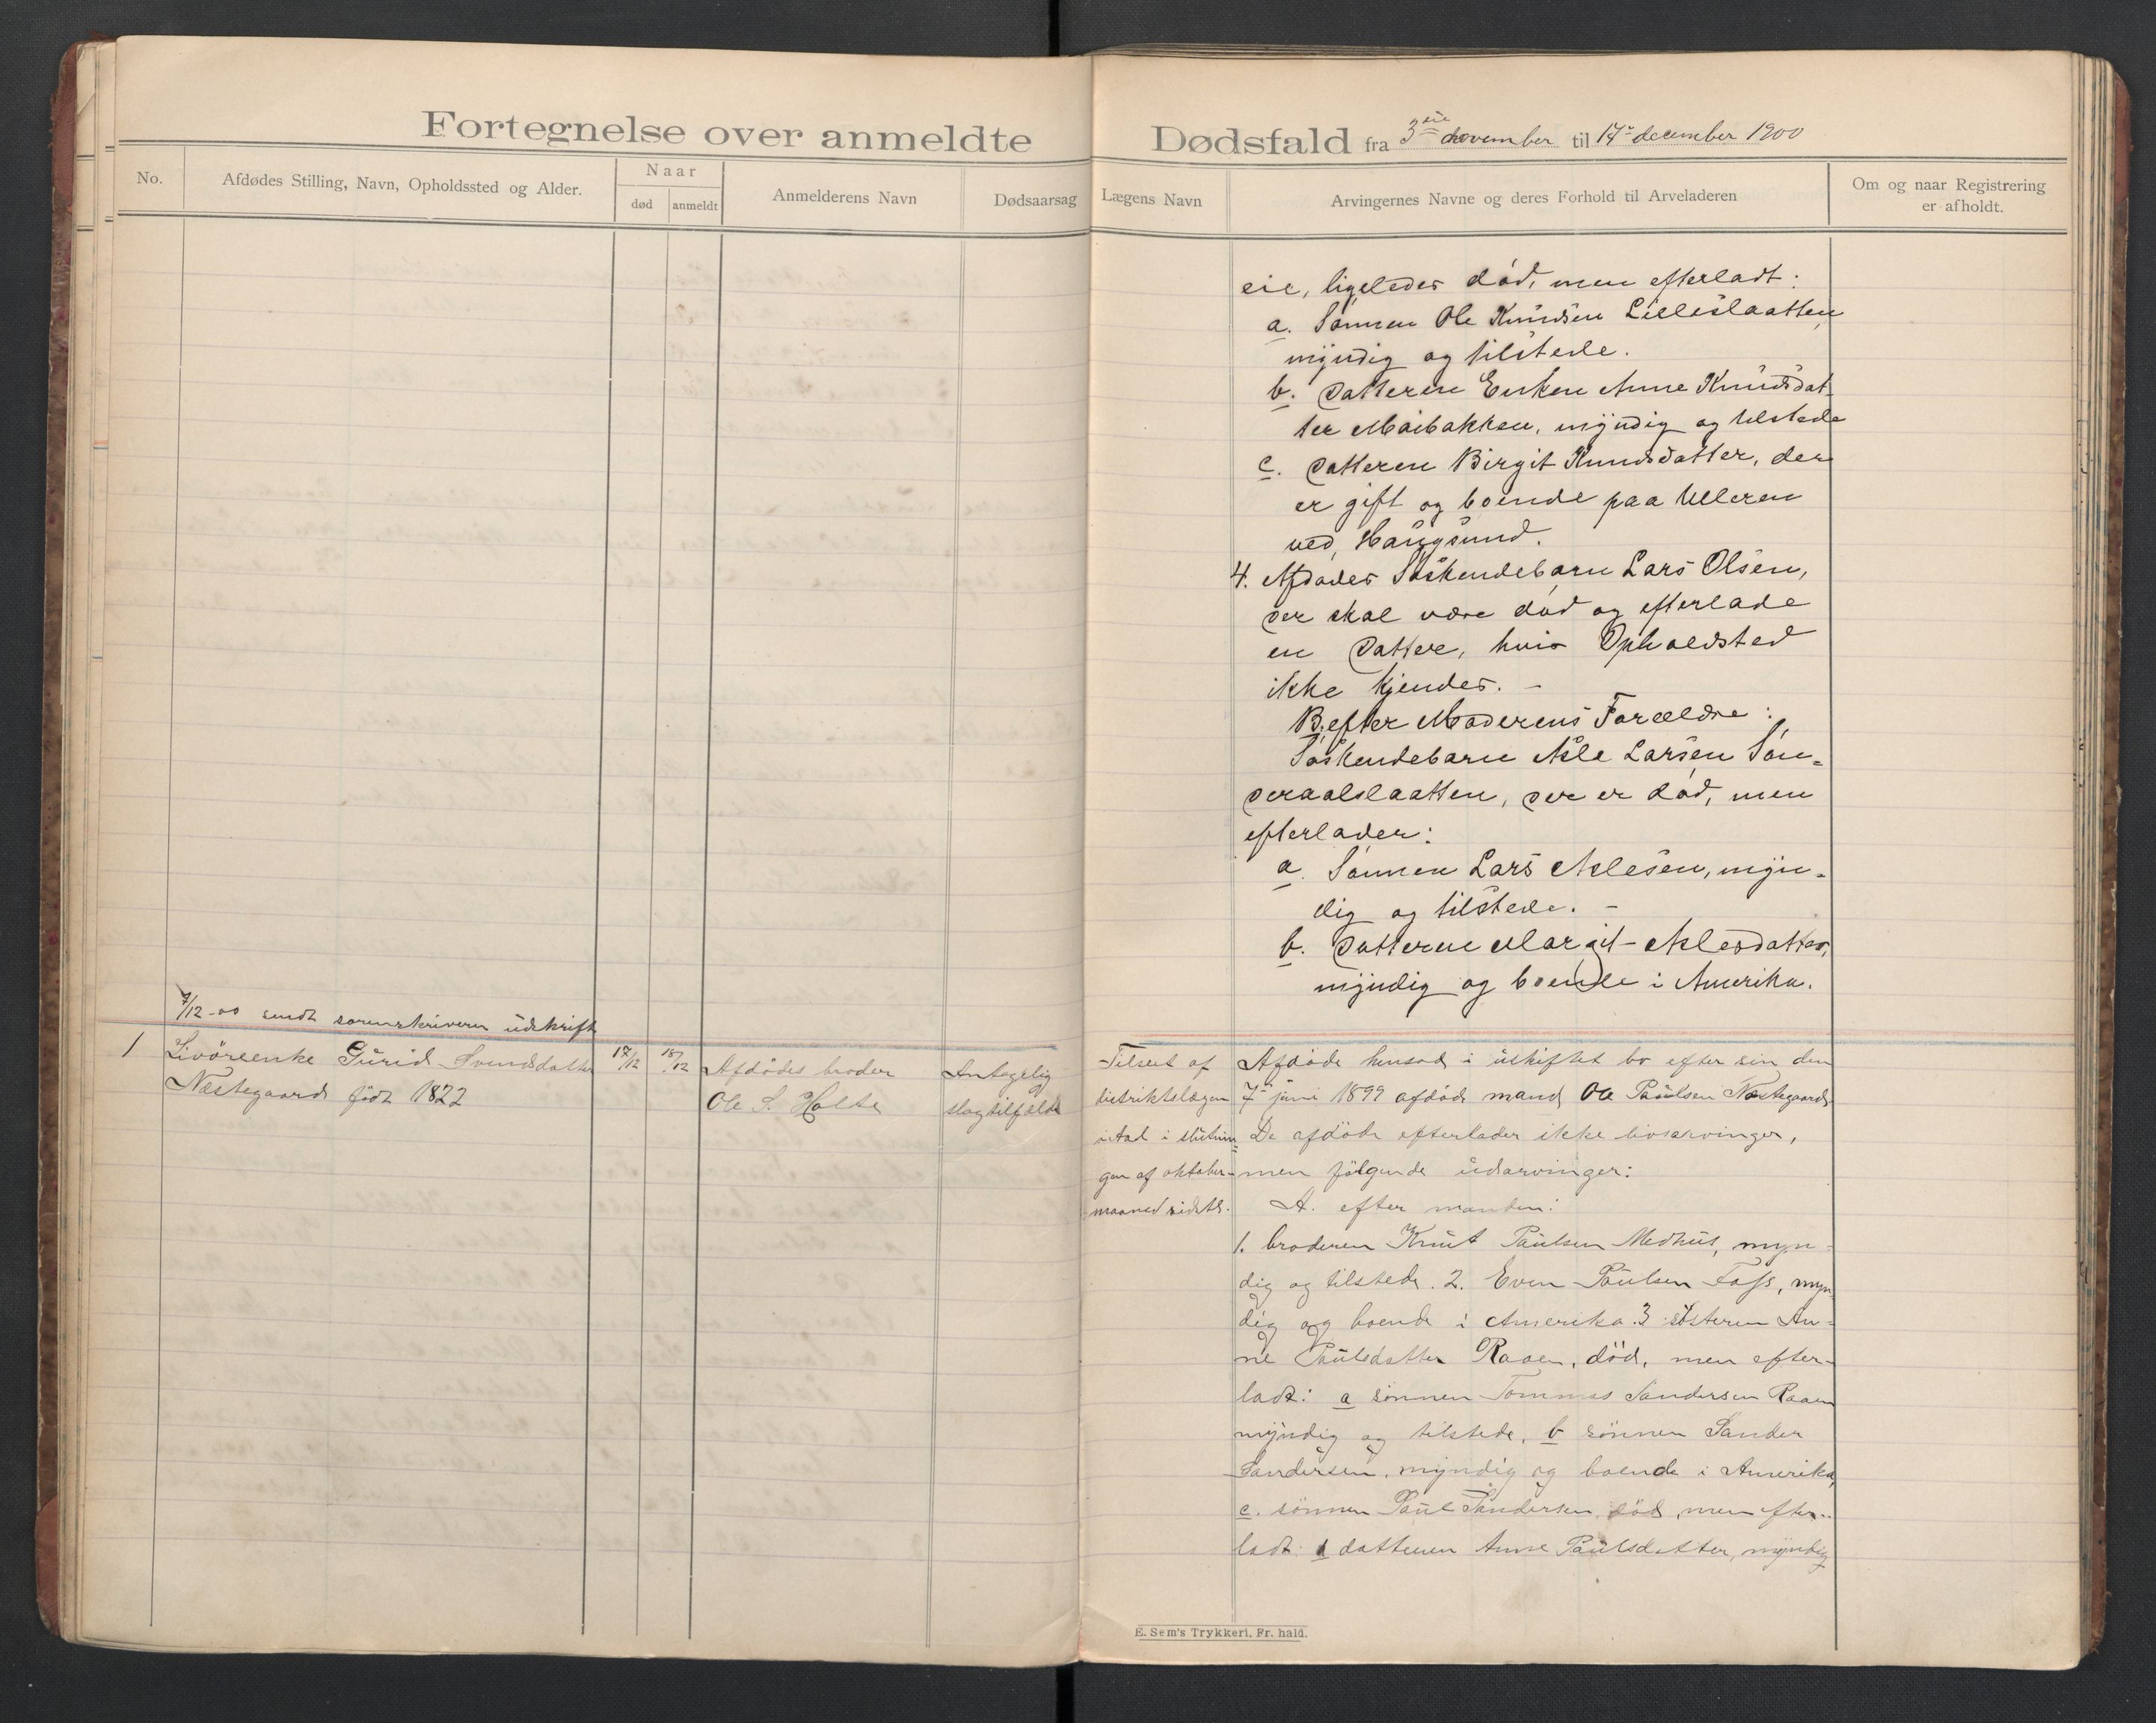 Fortegnelse over anmeldte
Dødsfald fra 3die november til 17de december 1900
No.
Afdødes Stilling, Navn, Opholdssted og Alder.
Naar
død
anmeldt
Anmelderens Navn
Dødsaarsag
Lægens Navn
Arvingernes Navne og deres Forhold til Arveladeren
Om og naar Registrering
er afholdt.
eie, ligeledes död, men efterladt:
a. Sønnen Ole Knudsen Lilleslaatten
myndig og tilstede.
b. Datteren Enken Anne Knudsdat-
ter Maibakken, myndig og tilstede
c. Datteren Birgit Knudsdatter, der
er gift og boende paa Ulleren
ved Haugsund.
4. Afdødes Söskendebarn Lars Olsen,
der skal være död og efterlade
en Datter, hvis Opholdsted
ikke kjendes. -
B. efter Moderens Forældre:
Söskendebarn Asle Larsen Sön-
deraalslaatten, der er död, men
efterlader:
a. Sönnen Lars Aslesen, myn-
dig og tilstede. -
b. Datteren Margit Aslesdatter,
myndig og boende i Amerika.
7/12-00 sendt sorenskriveren udskrift
1
Livöreenke Gurid Svendsdatter
Næstegaard född 1822
17/12
18/12
Afdödes broder
Ole S. Holte
Antagelig
slagtilfælde
Tilseet af
distriktslægen
istad i slutnin-
gen af oktober
maaned sidstl.
Afdöde hensad i uskiftet bo efter sin den
7de juni 1899 afdöde mand Ole Paulsen Næstegaard
De afdöde efterlader ikke livsarvinger,
men fölgende udarvinger:
A. efter manden:
1. broderen Knut Paulsen Medhus, myn-
dig og tilstede. 2. Even Paulsen Foss, myn-
dig og boende i Amerika. 3 sösteren An-
ne Paulsdatter Raaen, död, men efter-
ladt: a sönnen Tommas Sandersen Raaen
myndig og tilstede, b sönnen Sander
Sandersen, myndig og boende i Amerika,
c. sönnen Paul Sandersen, död, men efter-
ladt: 1 datteren Anne Paulsdatter, myndig
E. Sem's Trykkeri, Fr. hald.